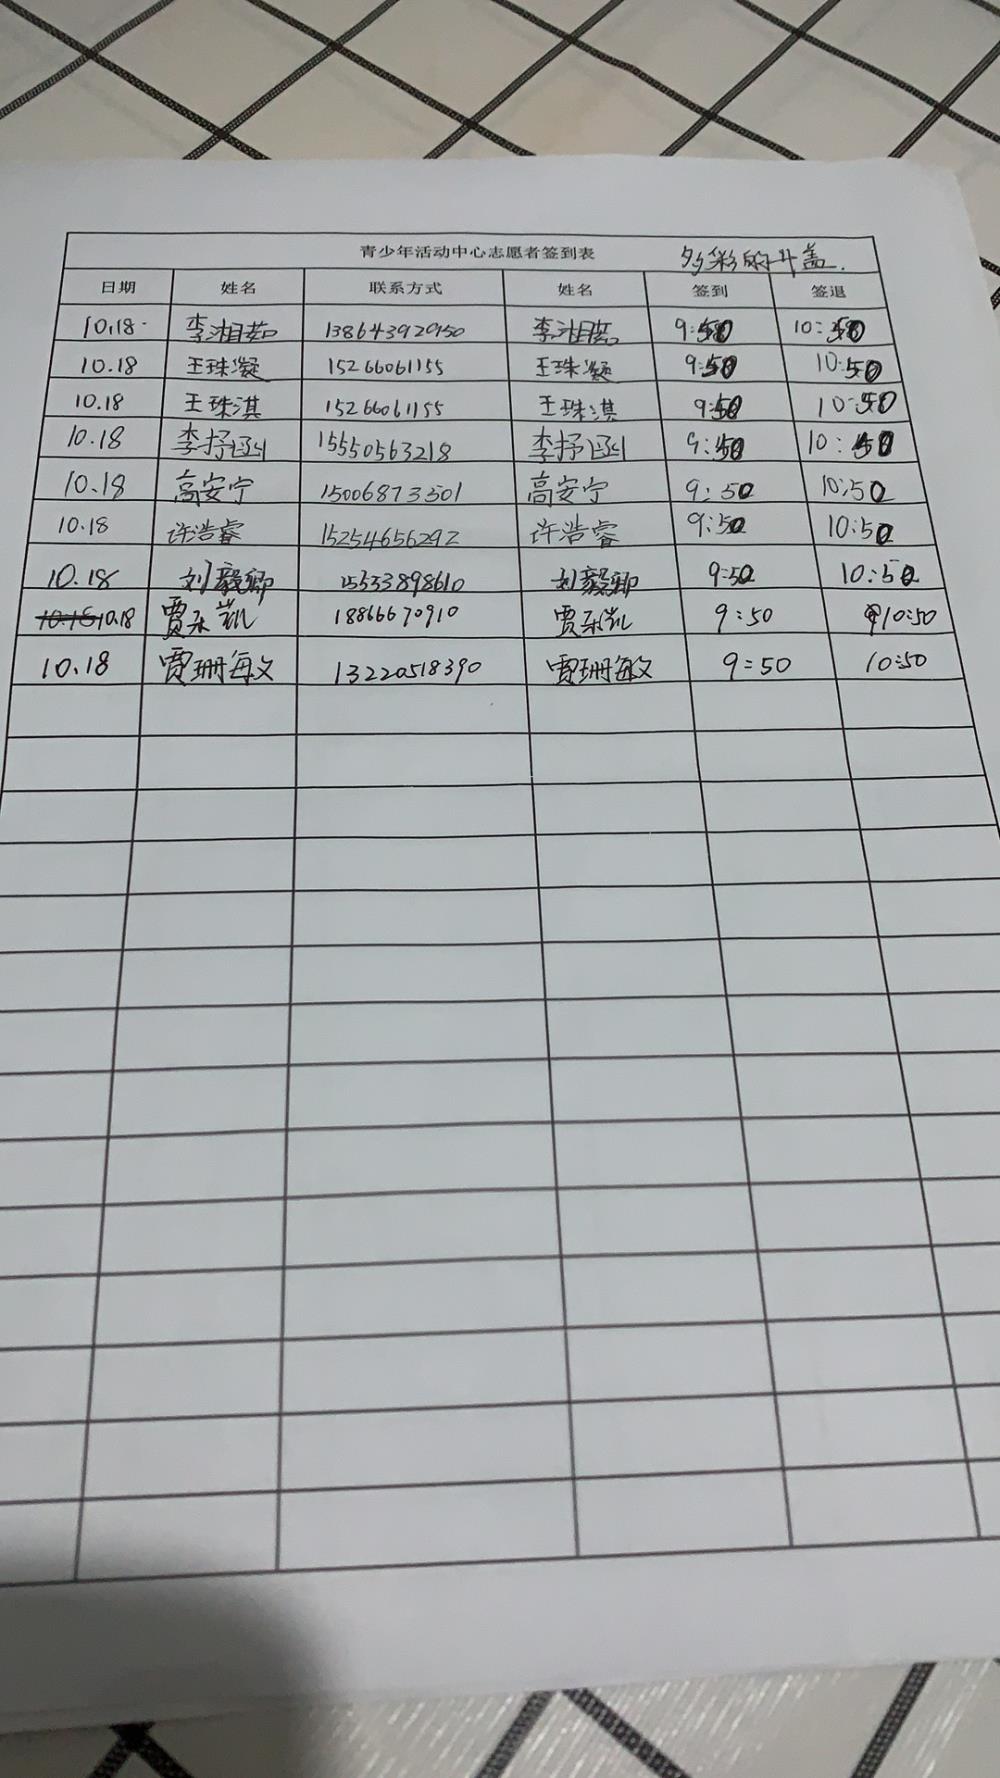 青少年活动中心志愿者签到表 多彩的升盖.
日期 姓名 联系方式 姓名 签到 签退
10.18 李湘茹 13864392950 李湘茹 9:50 10:50
10.18 王珠凝 15266061155 王珠凝 9:50 10:50
10.18 王珠淇 15266061155 王珠淇 9:50 10:50
10.18 李抒函 15550563218 李抒函 9:50 10:50
10.18 高安宁 15006873501 高安宁 9:50 10:50
10.18 许浩睿 15254656292 许浩睿 9:50 10:50
10.18 刘毅卿 15533898610 刘毅卿 9:50 10:50
10.18 贾承凯 18866670910 贾承凯 9:50 10:50
10.18 贾珊敏 13220518390 贾珊敏 9:50 10:50